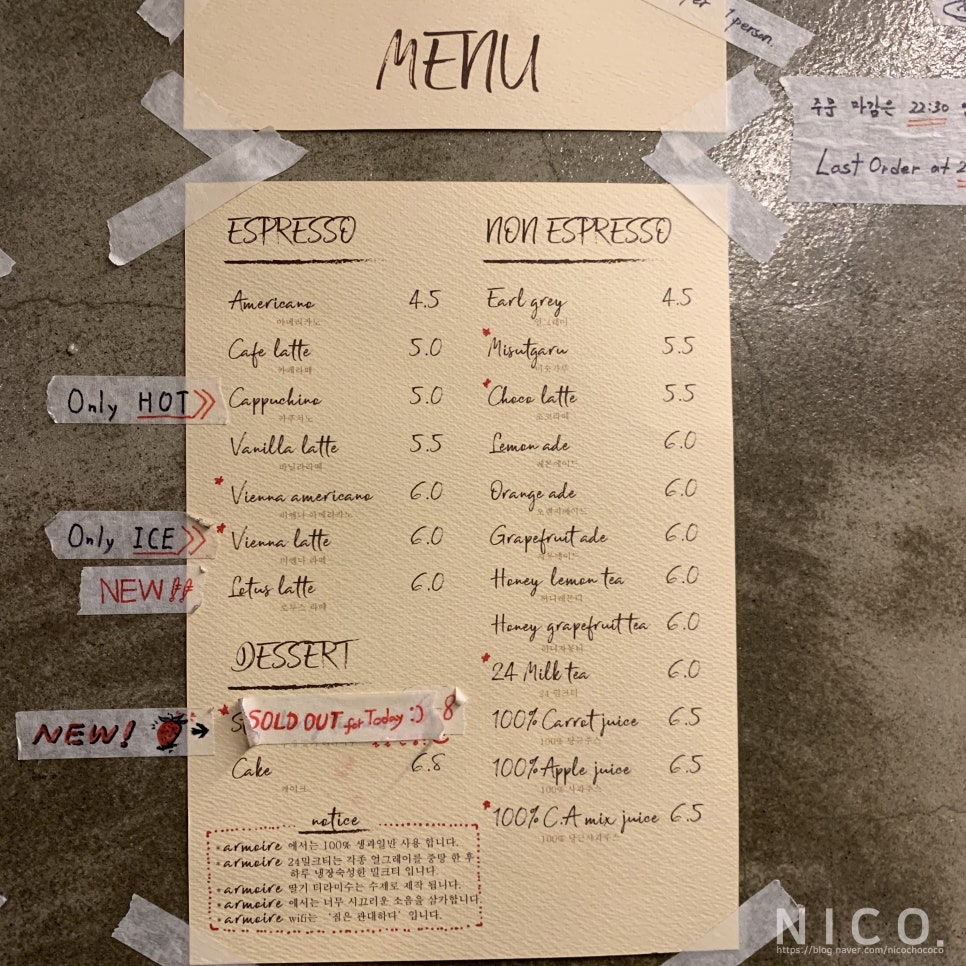 1 person.
MENU
주문 마감은 22:30
Last Order at
ESPRESSO
Americano 4.5
아메리카노
Cafe latte 5.0
카페라떼
Only HOT
Cappuchino 5.0
카푸치노
Vanilla latte 5.5
바닐라라떼
Vienna americano 6.0
비엔나 아메리카노
Only ICE
Vienna latte 6.0
비엔나 라떼
NEW!!
Lotus latte 6.0
로투스 라떼
DESSERT
NEW!
SOLD OUT for Today :) 8
Cake 6.8
케이크
NON ESPRESSO
Earl grey 4.5
얼그레이
Misutgaru 5.5
미숫가루
Choco latte 5.5
초코라떼
Lemon ade 6.0
레몬에이드
Orange ade 6.0
오렌지에이드
Grapefruit ade 6.0
자몽에이드
Honey lemon tea 6.0
허니레몬티
Honey grapefruit tea 6.0
허니자몽티
24 Milk tea 6.0
24 밀크티
100% Carrot juice 6.5
100% 당근주스
100% Apple juice 6.5
100% 사과주스
100% C.A mix juice 6.5
100% 당근사과주스
notice
armoire 에서는 100% 생과일만 사용 합니다.
armoire 24밀크티는 각종 얼그레이를 중탕 한 후
하루 냉장숙성한 밀크티 입니다.
armoire 딸기 티라미수는 수제로 제작 됩니다.
armoire 에서는 너무 시끄러운 소음을 삼가합니다.
armoire wifi는 '짐은 관대하다' 입니다.
NICO.
https://blog.naver.com/nicochococo